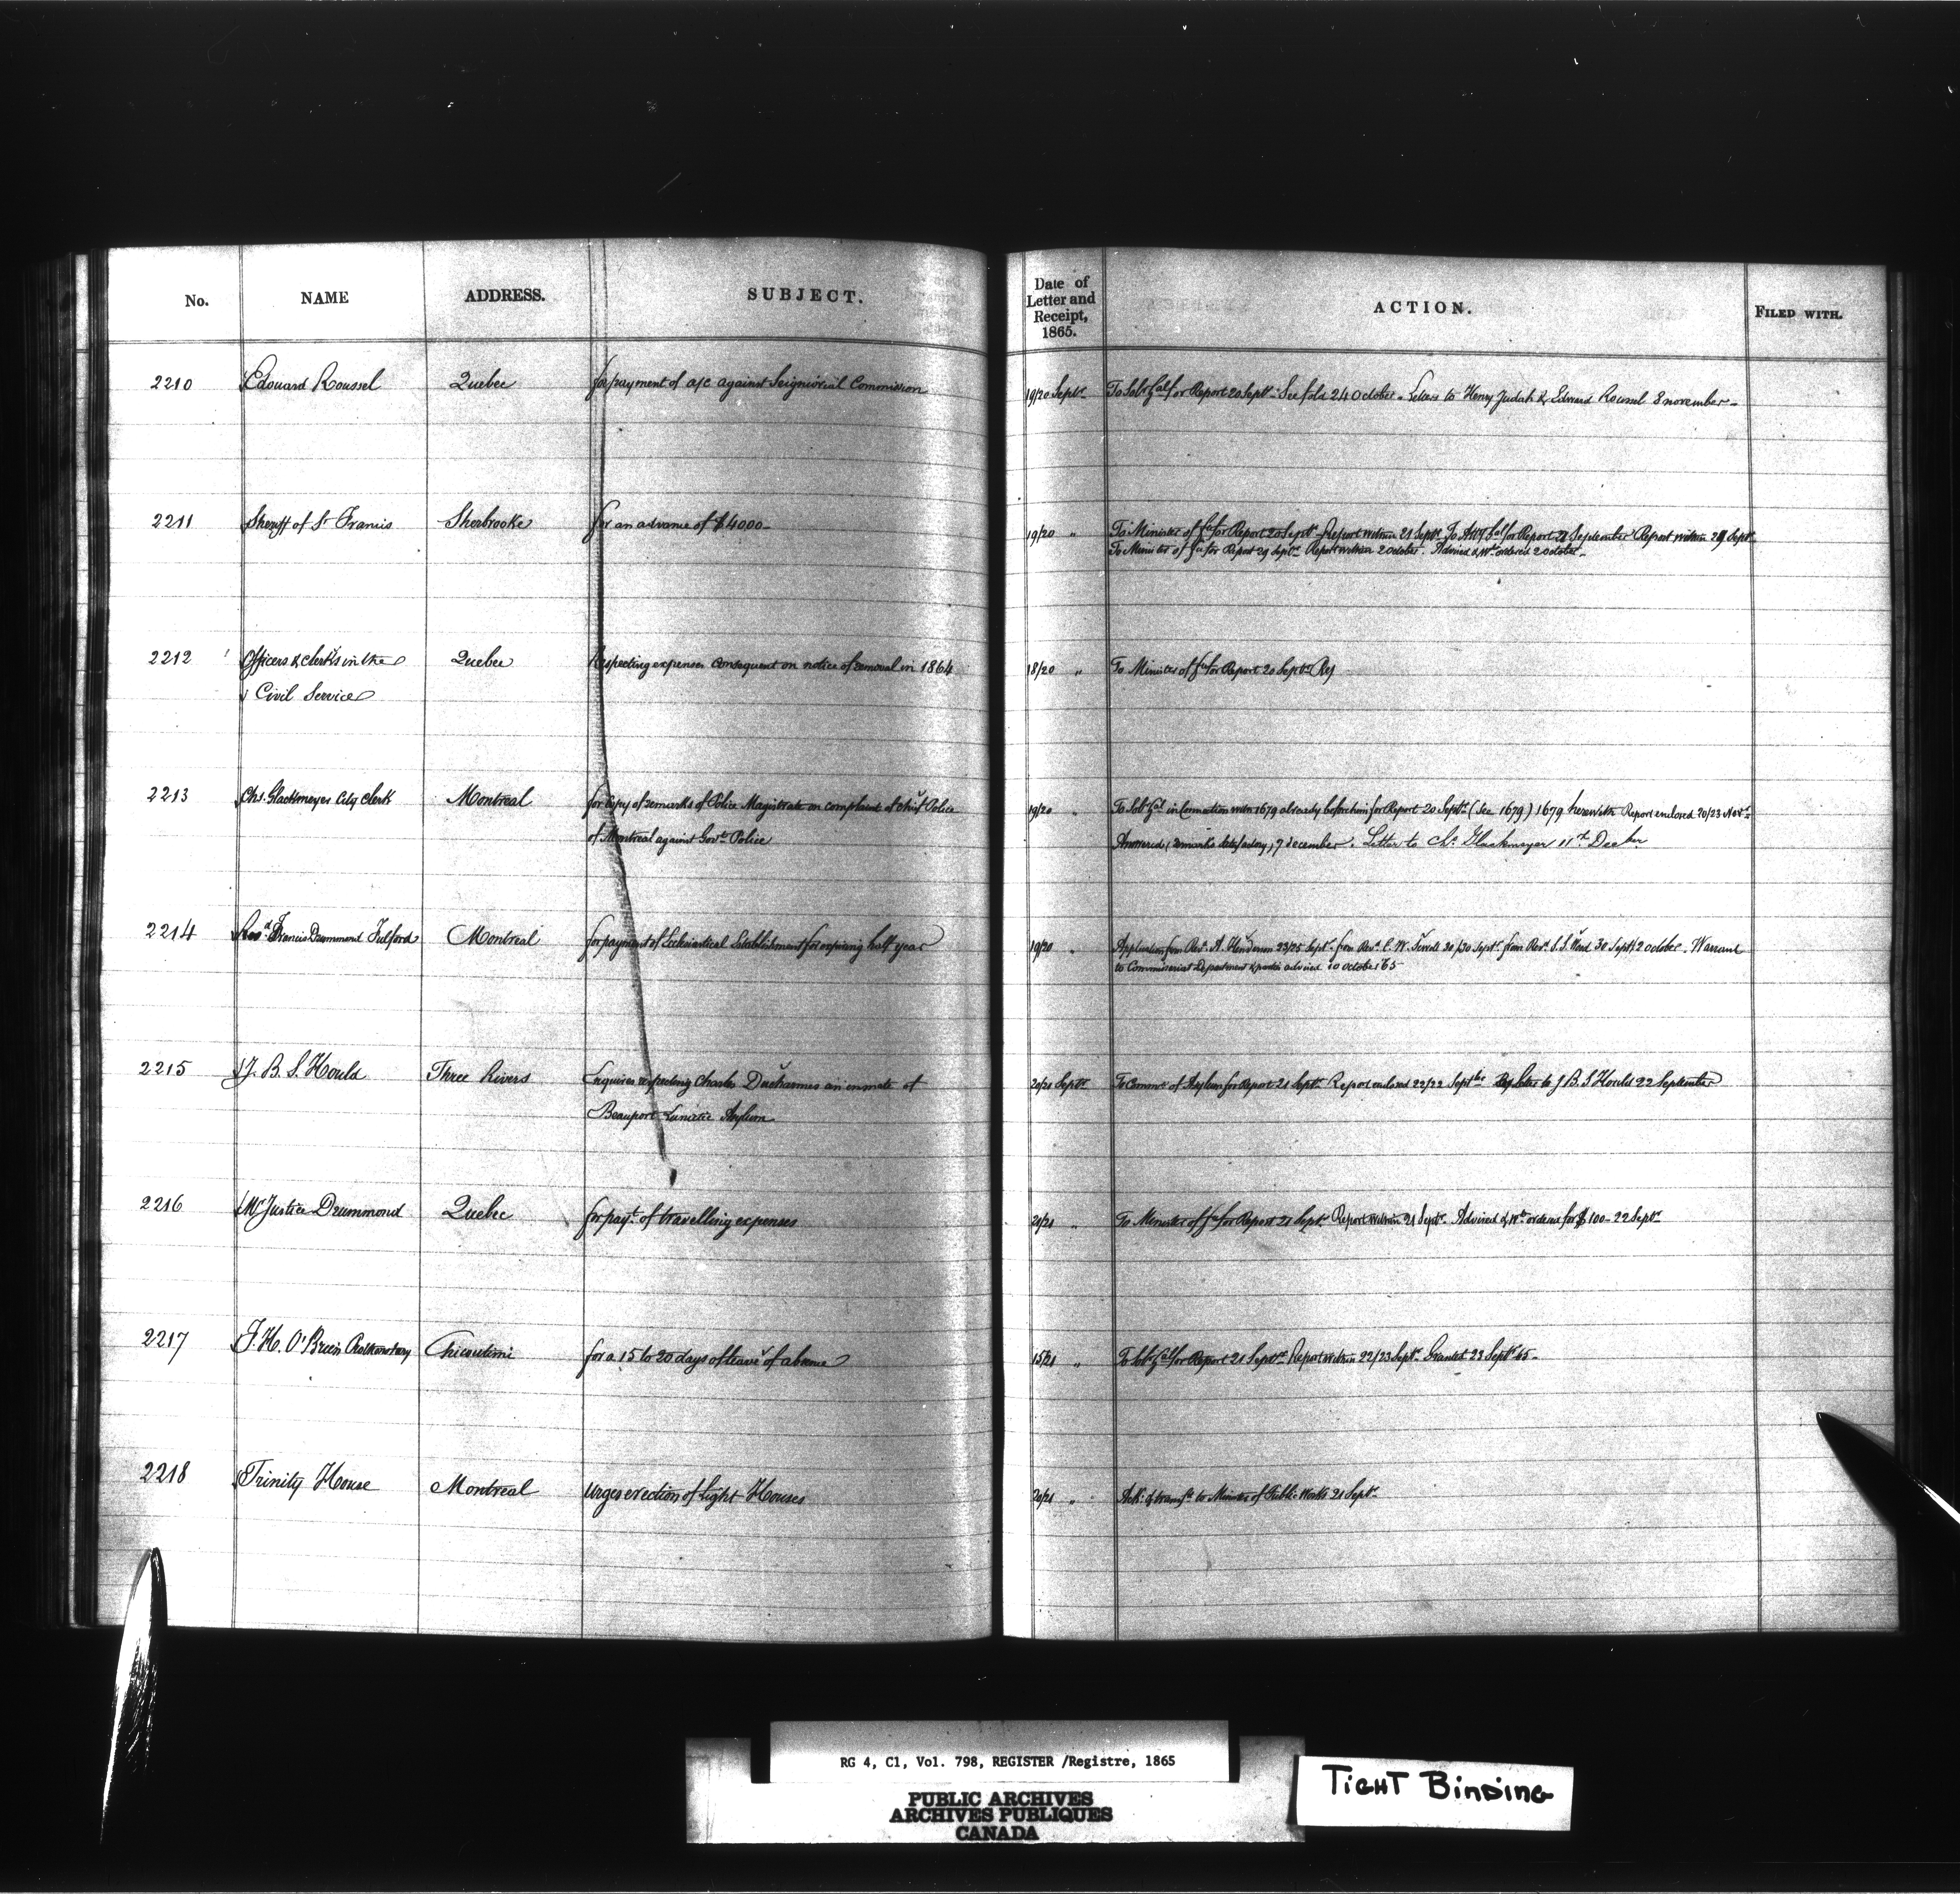 No. NAME ADDRESS. SUBJECT. Date of Letter and Receipt, 1865. ACTION. FILED WITH.
2210 Edouard Roussel Quebec for payment of a/c against Seigniorial Commission 19/20 Septr To Solr Gal for Report 20 Septr See fold 24 October. Letters to Henry Judah & Edward Roussel 8 november
2211 Sheriff of St Francis Sherbrooke for an advance of $4000 19/20 " To Minister of for Report 20 Septr Report within 21 Septr To Atty Gal for Report 21 September Report within 29 Septr
To Minister of for Report 29 Septr Report within 2 October. Advised & Wt ordered 2 october
2212 Officers & clerks in the Quebec Respecting expenses consequent on notice of removal in 1864 18/20 " To Minister of for Report 20 Septr
Civil Service
2213 Chs. Glackmeyer City Clerk Montreal for copy of remarks of Police Magistrate on complaint of chief Police 19/20 " To Solr Gal in connection with 1679 already before him for Report 20 Septr (See 1679) 1679 herewith Report enclosed 20/23 Novr
of Montreal against Govt Police Answered, 7 december. Letter to Chs Glackmeyer 11th Decber
2214 Revd Francis Drummond Fulford Montreal for payment of Ecclesiastical Establishment for expiring half year 19/20 " Application from Revd A. Henderson 23/25 Septr from Revd 30/30 Septr from Revd S.S. Wood 30 Septr 2 october. Warrant
to Commissariat Department & parties advised 10 october '65
2215 J. B. S. Hould Three Rivers Enquires respecting Charles Ducharmes an inmate of 20/21 Septr To Commrs of Asylum for Report 21 Septr Report enclosed 22/22 Septbr Letter to J B. S Hould 22 September
Beauport Lunatic Asylum
2216 Mr Justice Drummond Quebec for payt of travelling expenses 21/21 " To Minister of for Report 21 Septr Report within 21 Septr Advised & Wt ordered for $100 - 22 Septr
2217 J. H. O'Brien Chicoutimi for a 15 to 20 days of leave of absence 15/21 " To Solr Gal for Report 21 Septr Report within 22/23 Septr Granted 23 Septr 65
2218 Trinity House Montreal Urges erection of Light Houses 20/21 " Ack: & transfd to Minister of Public Works 21 Septr
RG 4, C1, Vol. 798, REGISTER /Registre, 1865
PUBLIC ARCHIVES
ARCHIVES PUBLIQUES
CANADA
TIGHT BINDING